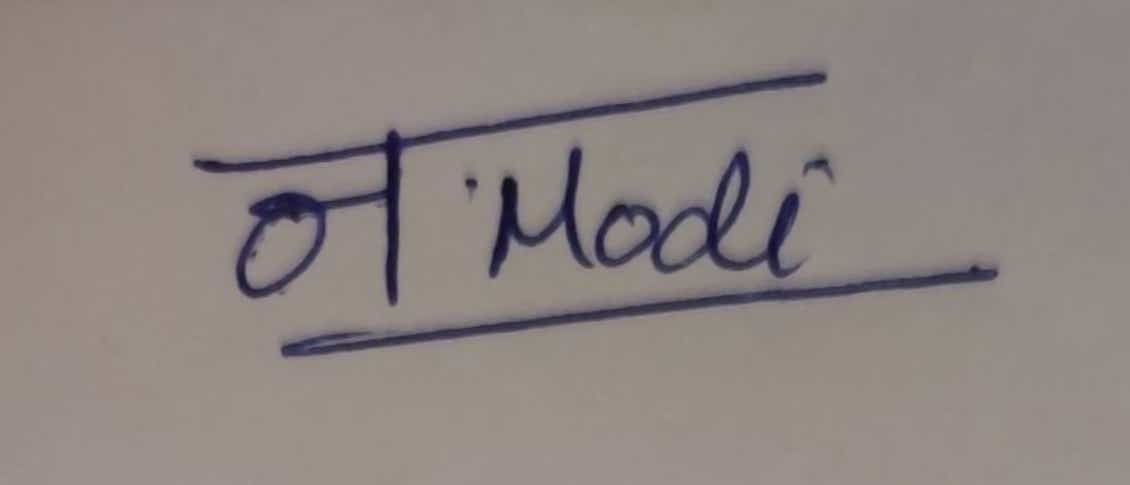 न. Modi